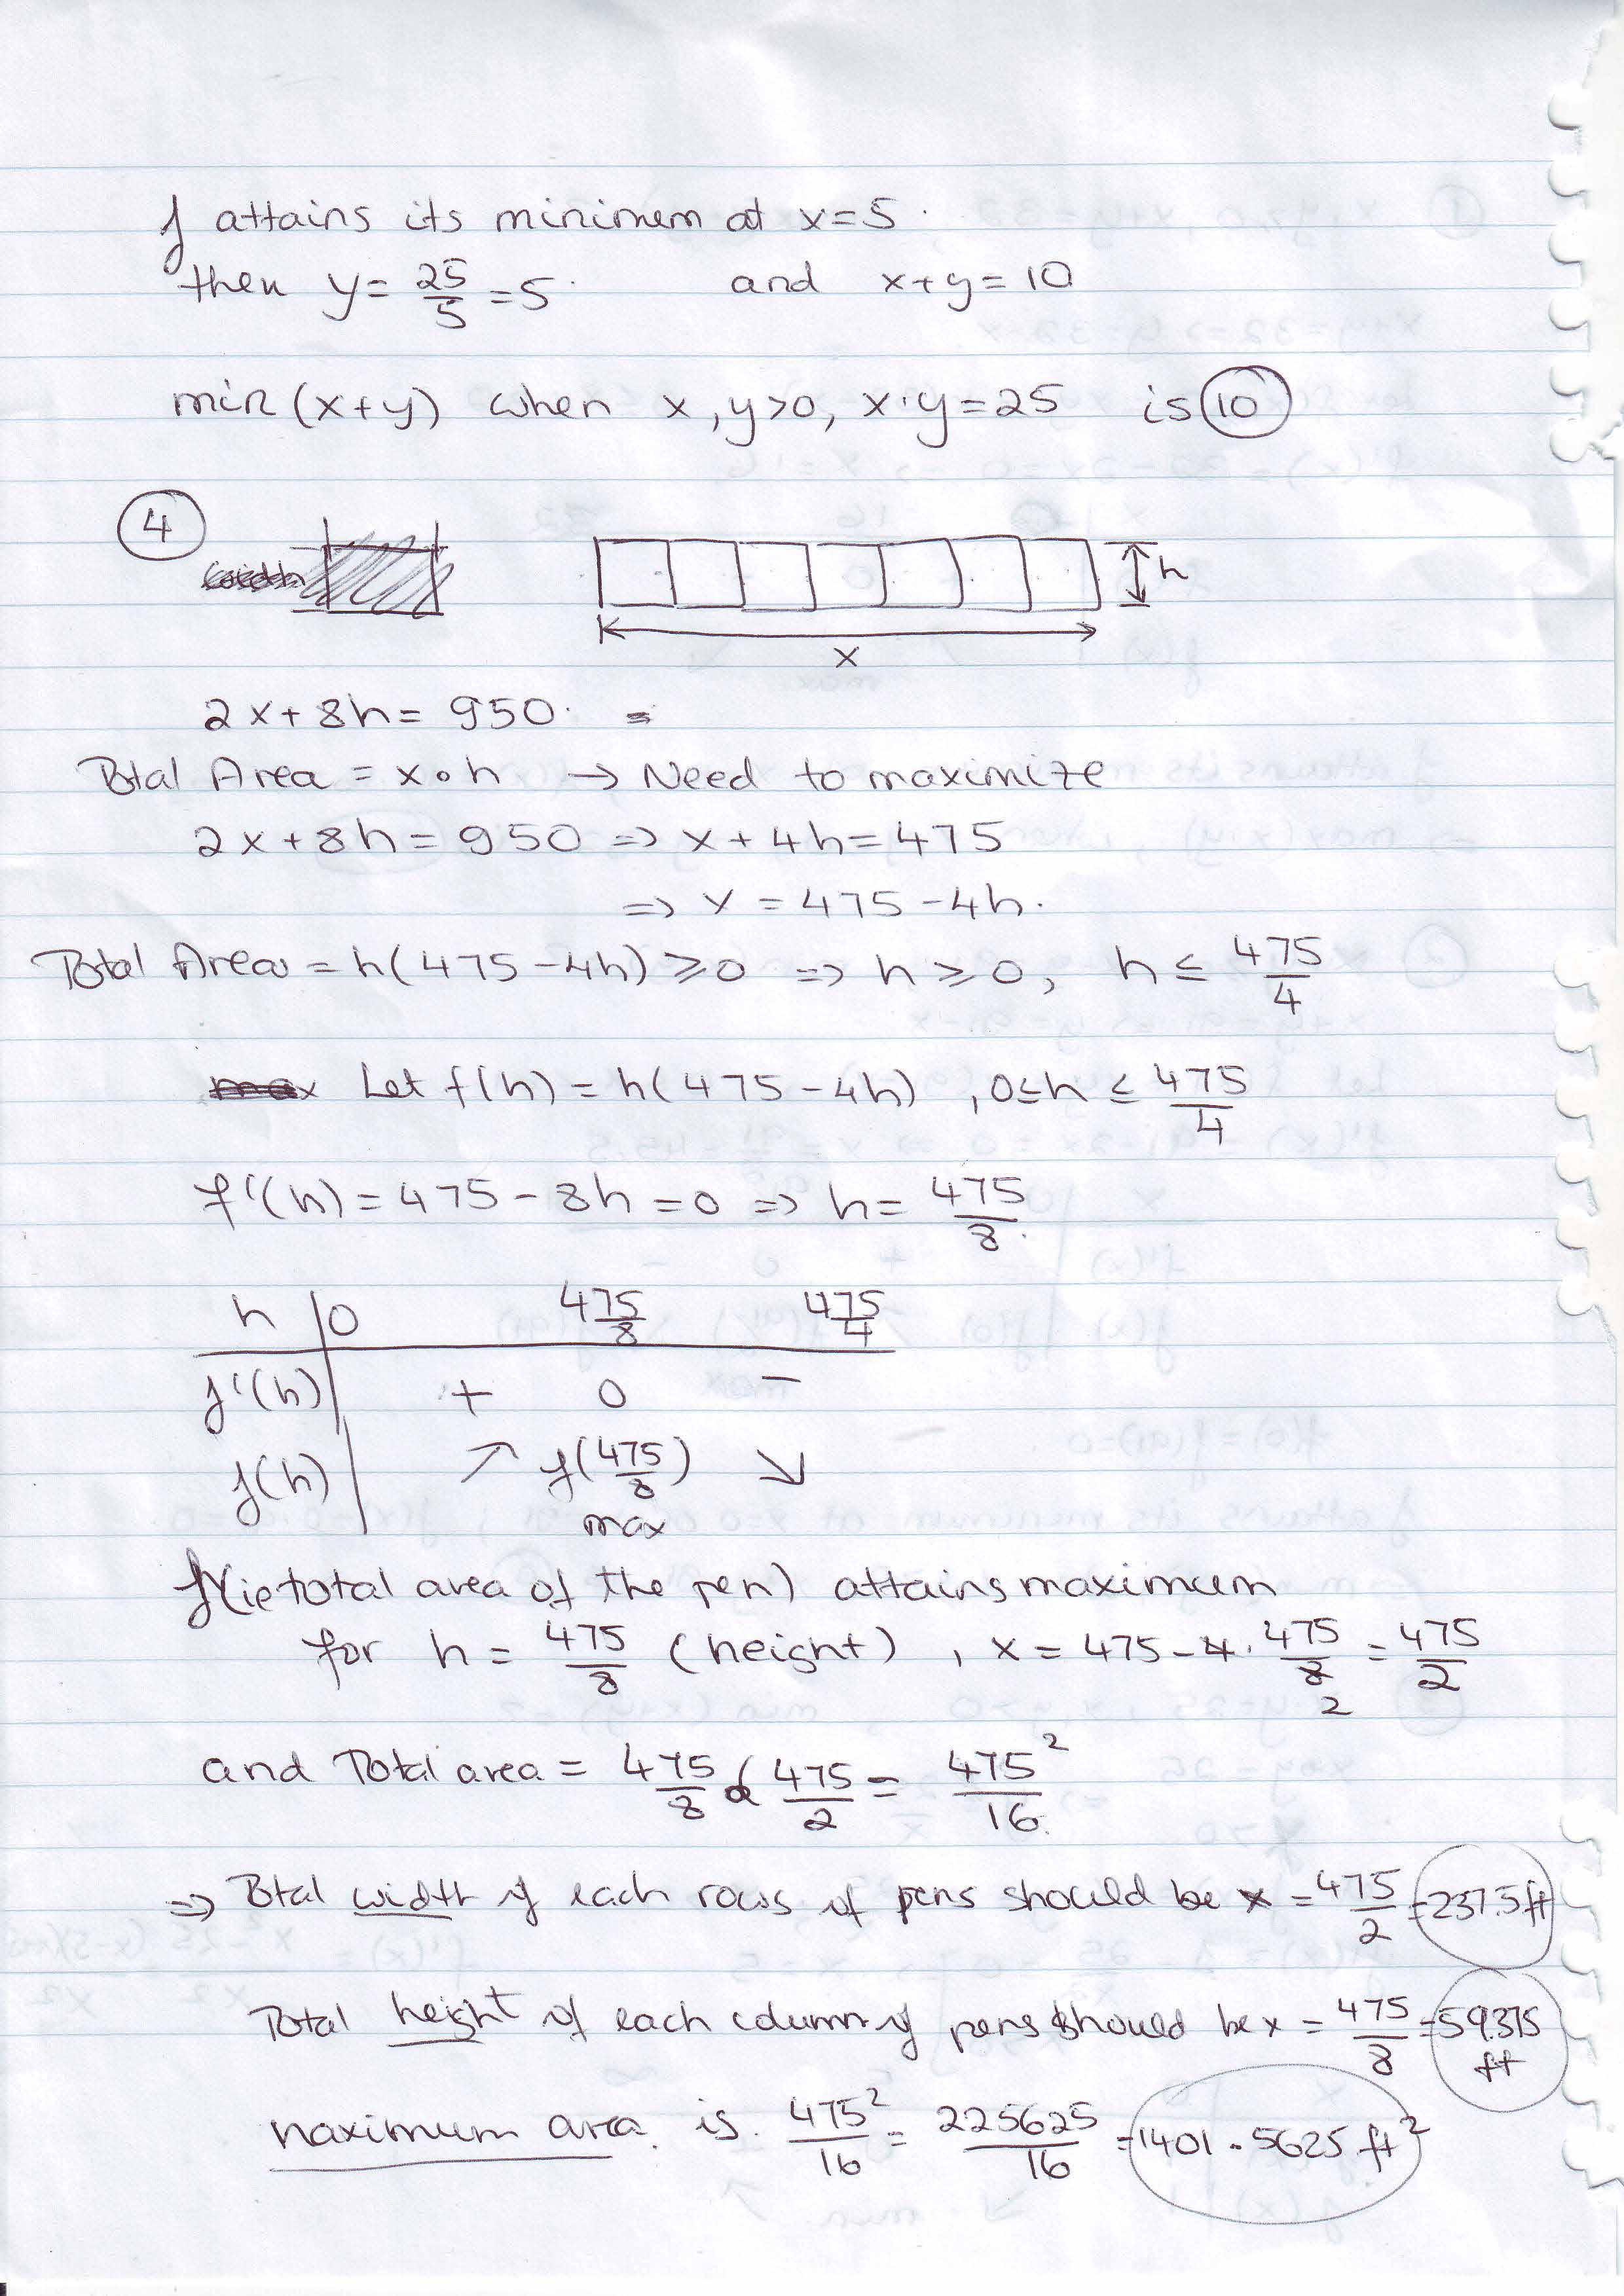 f attains its minimum at x=5.
then y= 25/5 =5. and x+y=10
min (x+y) when x,y>0, x·y=25 is 10
4
width
h
x
2x+8h= 950. =
Total Area = x·h → Need to maximize
2x+8h=950 => x+4h=475
=> x = 475-4h.
Total Area = h(475-4h) ≥0 => h ≥ 0, h ≤ 475/4
max Let f(h) = h(475-4h) , 0≤h ≤ 475/4
f'(h)=475-8h=0 => h= 475/8.
h | 0 475/8 475/4
f'(h) | + 0 -
f(h) | ↗ f(475/8) ↘
max
f(ie total area of the pen) attains maximum
for h = 475/8 (height) , x = 475-4· 475/8 = 475/2
2
and Total area = 475/8 · 475/2 = 475²/16.
=> Total width of each rows of pens should be x = 475/2 =237.5ft
Total height of each column of pens should be x = 475/8 =59.375 ft
maximum area. is. 475²/16 = 225625/16 =1401.5625 ft²